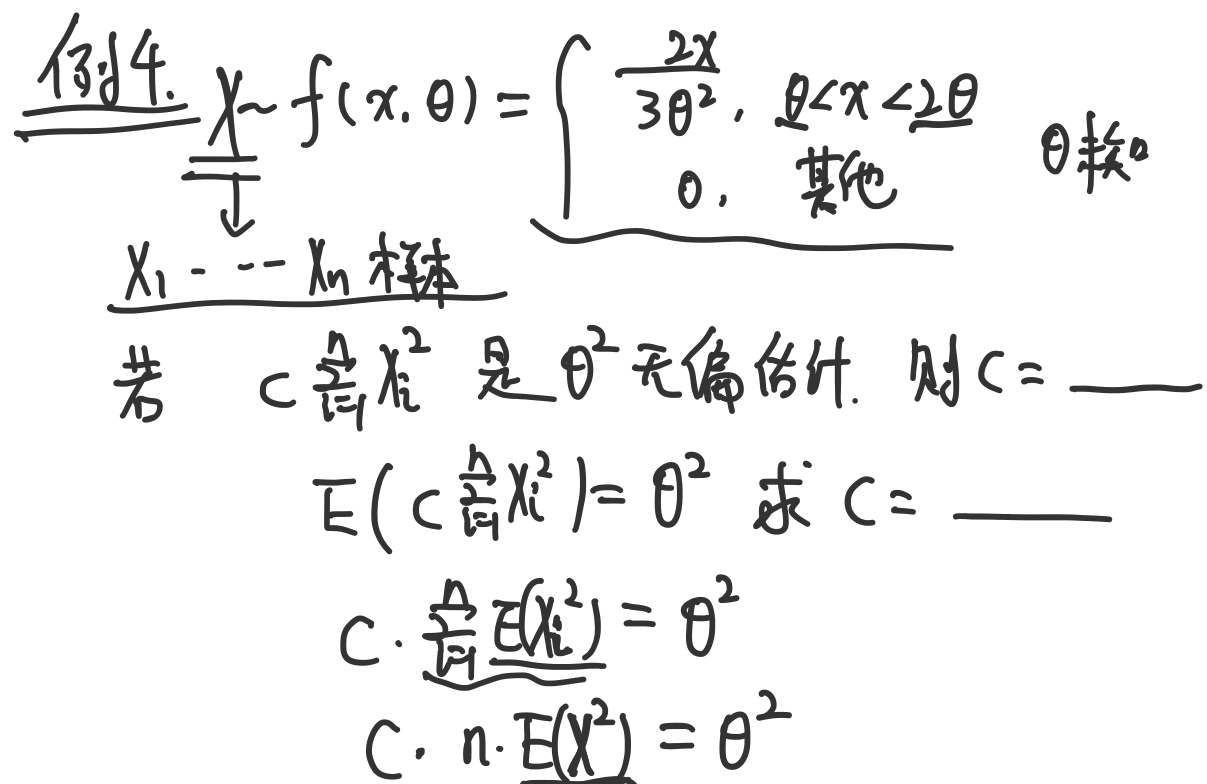 例4. X ~ f(x.θ) = { 2x/3θ², θ<x<2θ
0, 其他
θ未知
X₁ ---- Xₙ 样本
若 C ∑ᵢ₌₁ⁿ Xᵢ² 是 θ² 无偏估计. 则 C = ____
E( C ∑ᵢ₌₁ⁿ Xᵢ² ) = θ² 求 C = ____
C · ∑ᵢ₌₁ⁿ E(Xᵢ²) = θ²
C · n · E(X²) = θ²